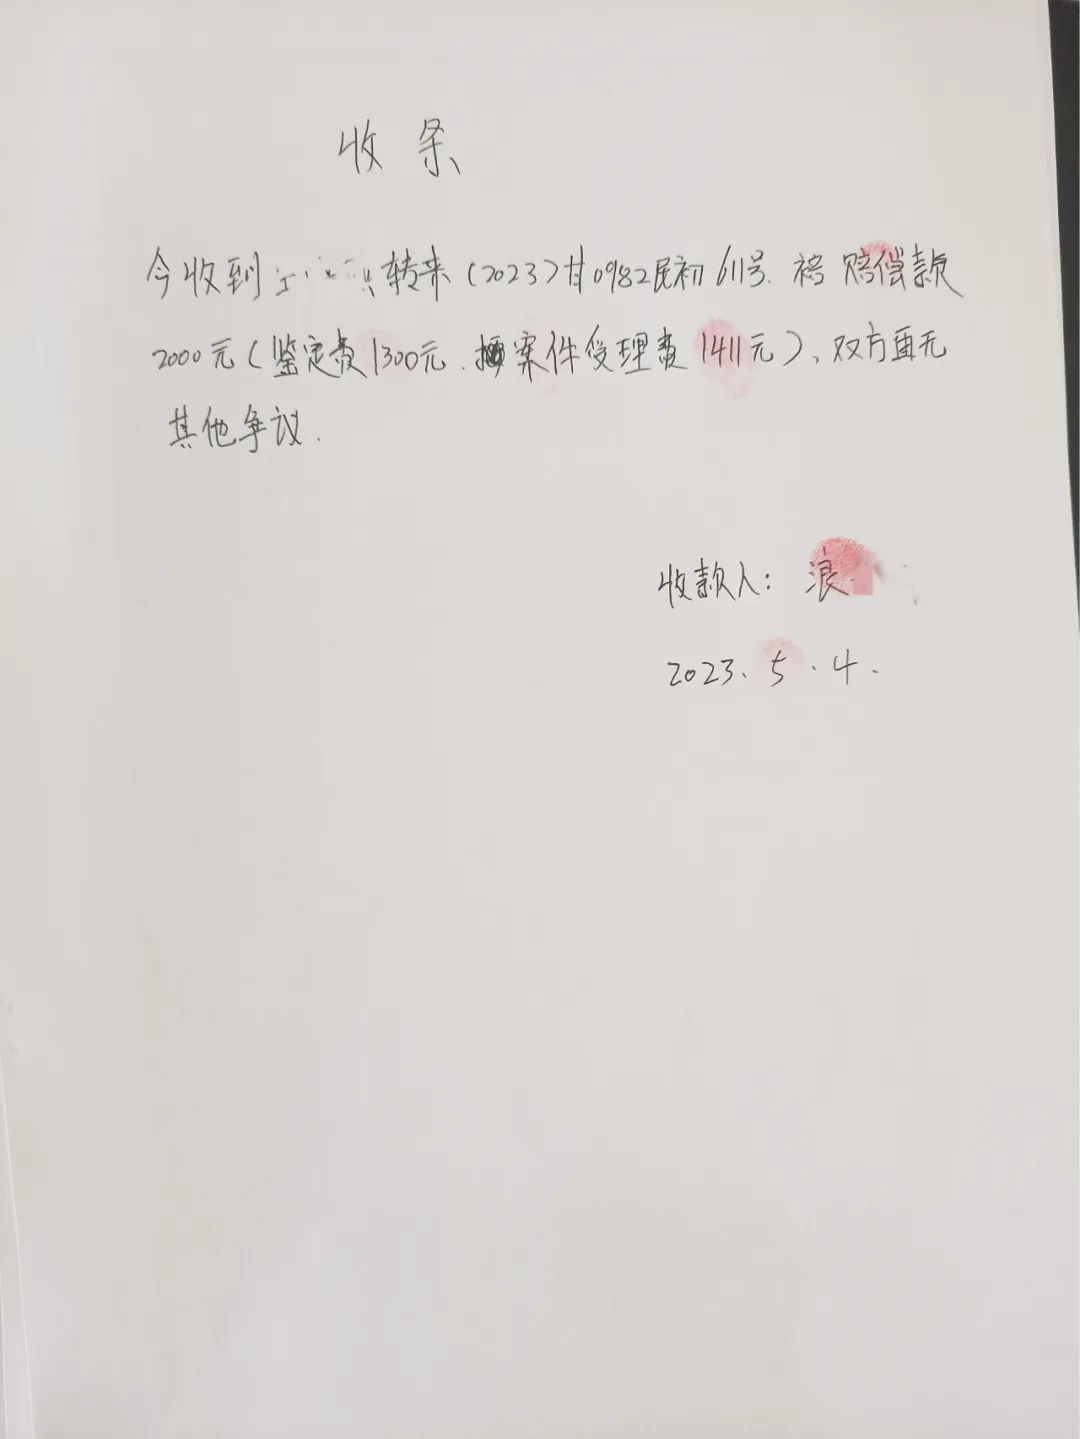 收条
今收到 转来(2023)甘0982民初611号. 赔偿款
2000元(鉴定费1300元. 案件受理费1411元)、双方再无
其他争议.
收款人: 浪
2023. 5. 4.